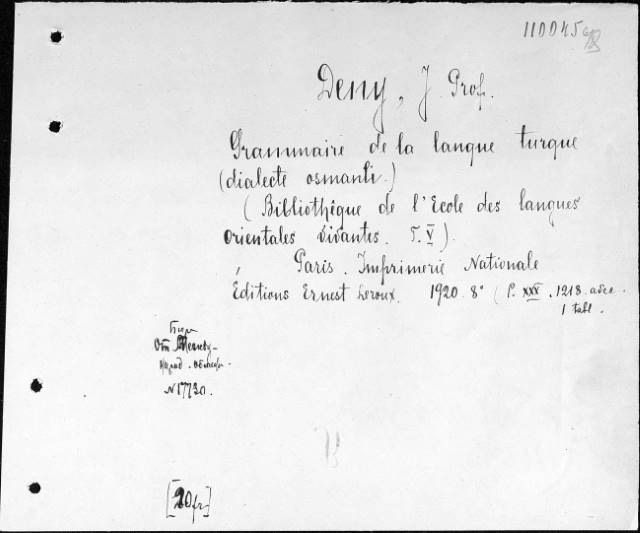 110045
Deny, J. Prof.
Grammaire de la langue turque
(dialecte osmanli.)
(Bibliothêque de l'Ecole des langues
orientales vivantes. T. V)
Paris. Imprimerie Nationale
Éditions Ernest Leroux. 1920. 8° (P. XXX, 1218.
1 tabl.
От
№17730.
[20 fr]